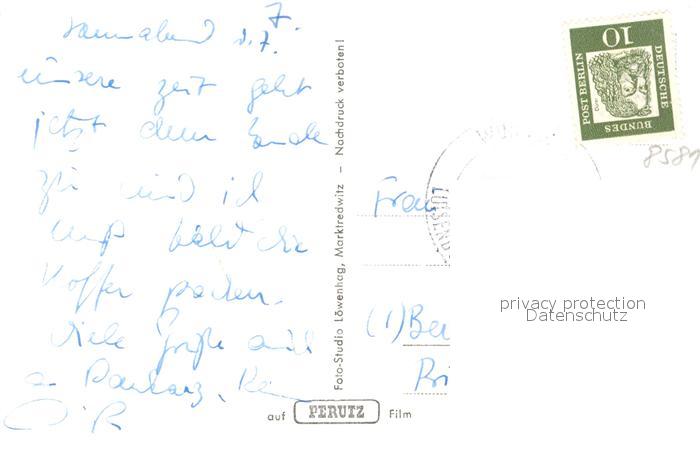 Sonnabend d. 7. 7.
unsere Zeit geht
jetzt dem Ende
zu und ich
muß bald die
Koffer packen.
Viele Grüße auch
an
Foto-Studio Löwenhag, Marktredwitz – Nachdruck verboten!
auf PERUTZ Film
DEUTSCHE
BUNDES
POST BERLIN
10
8581
Frau
(1) Ber
privacy protection
Datenschutz